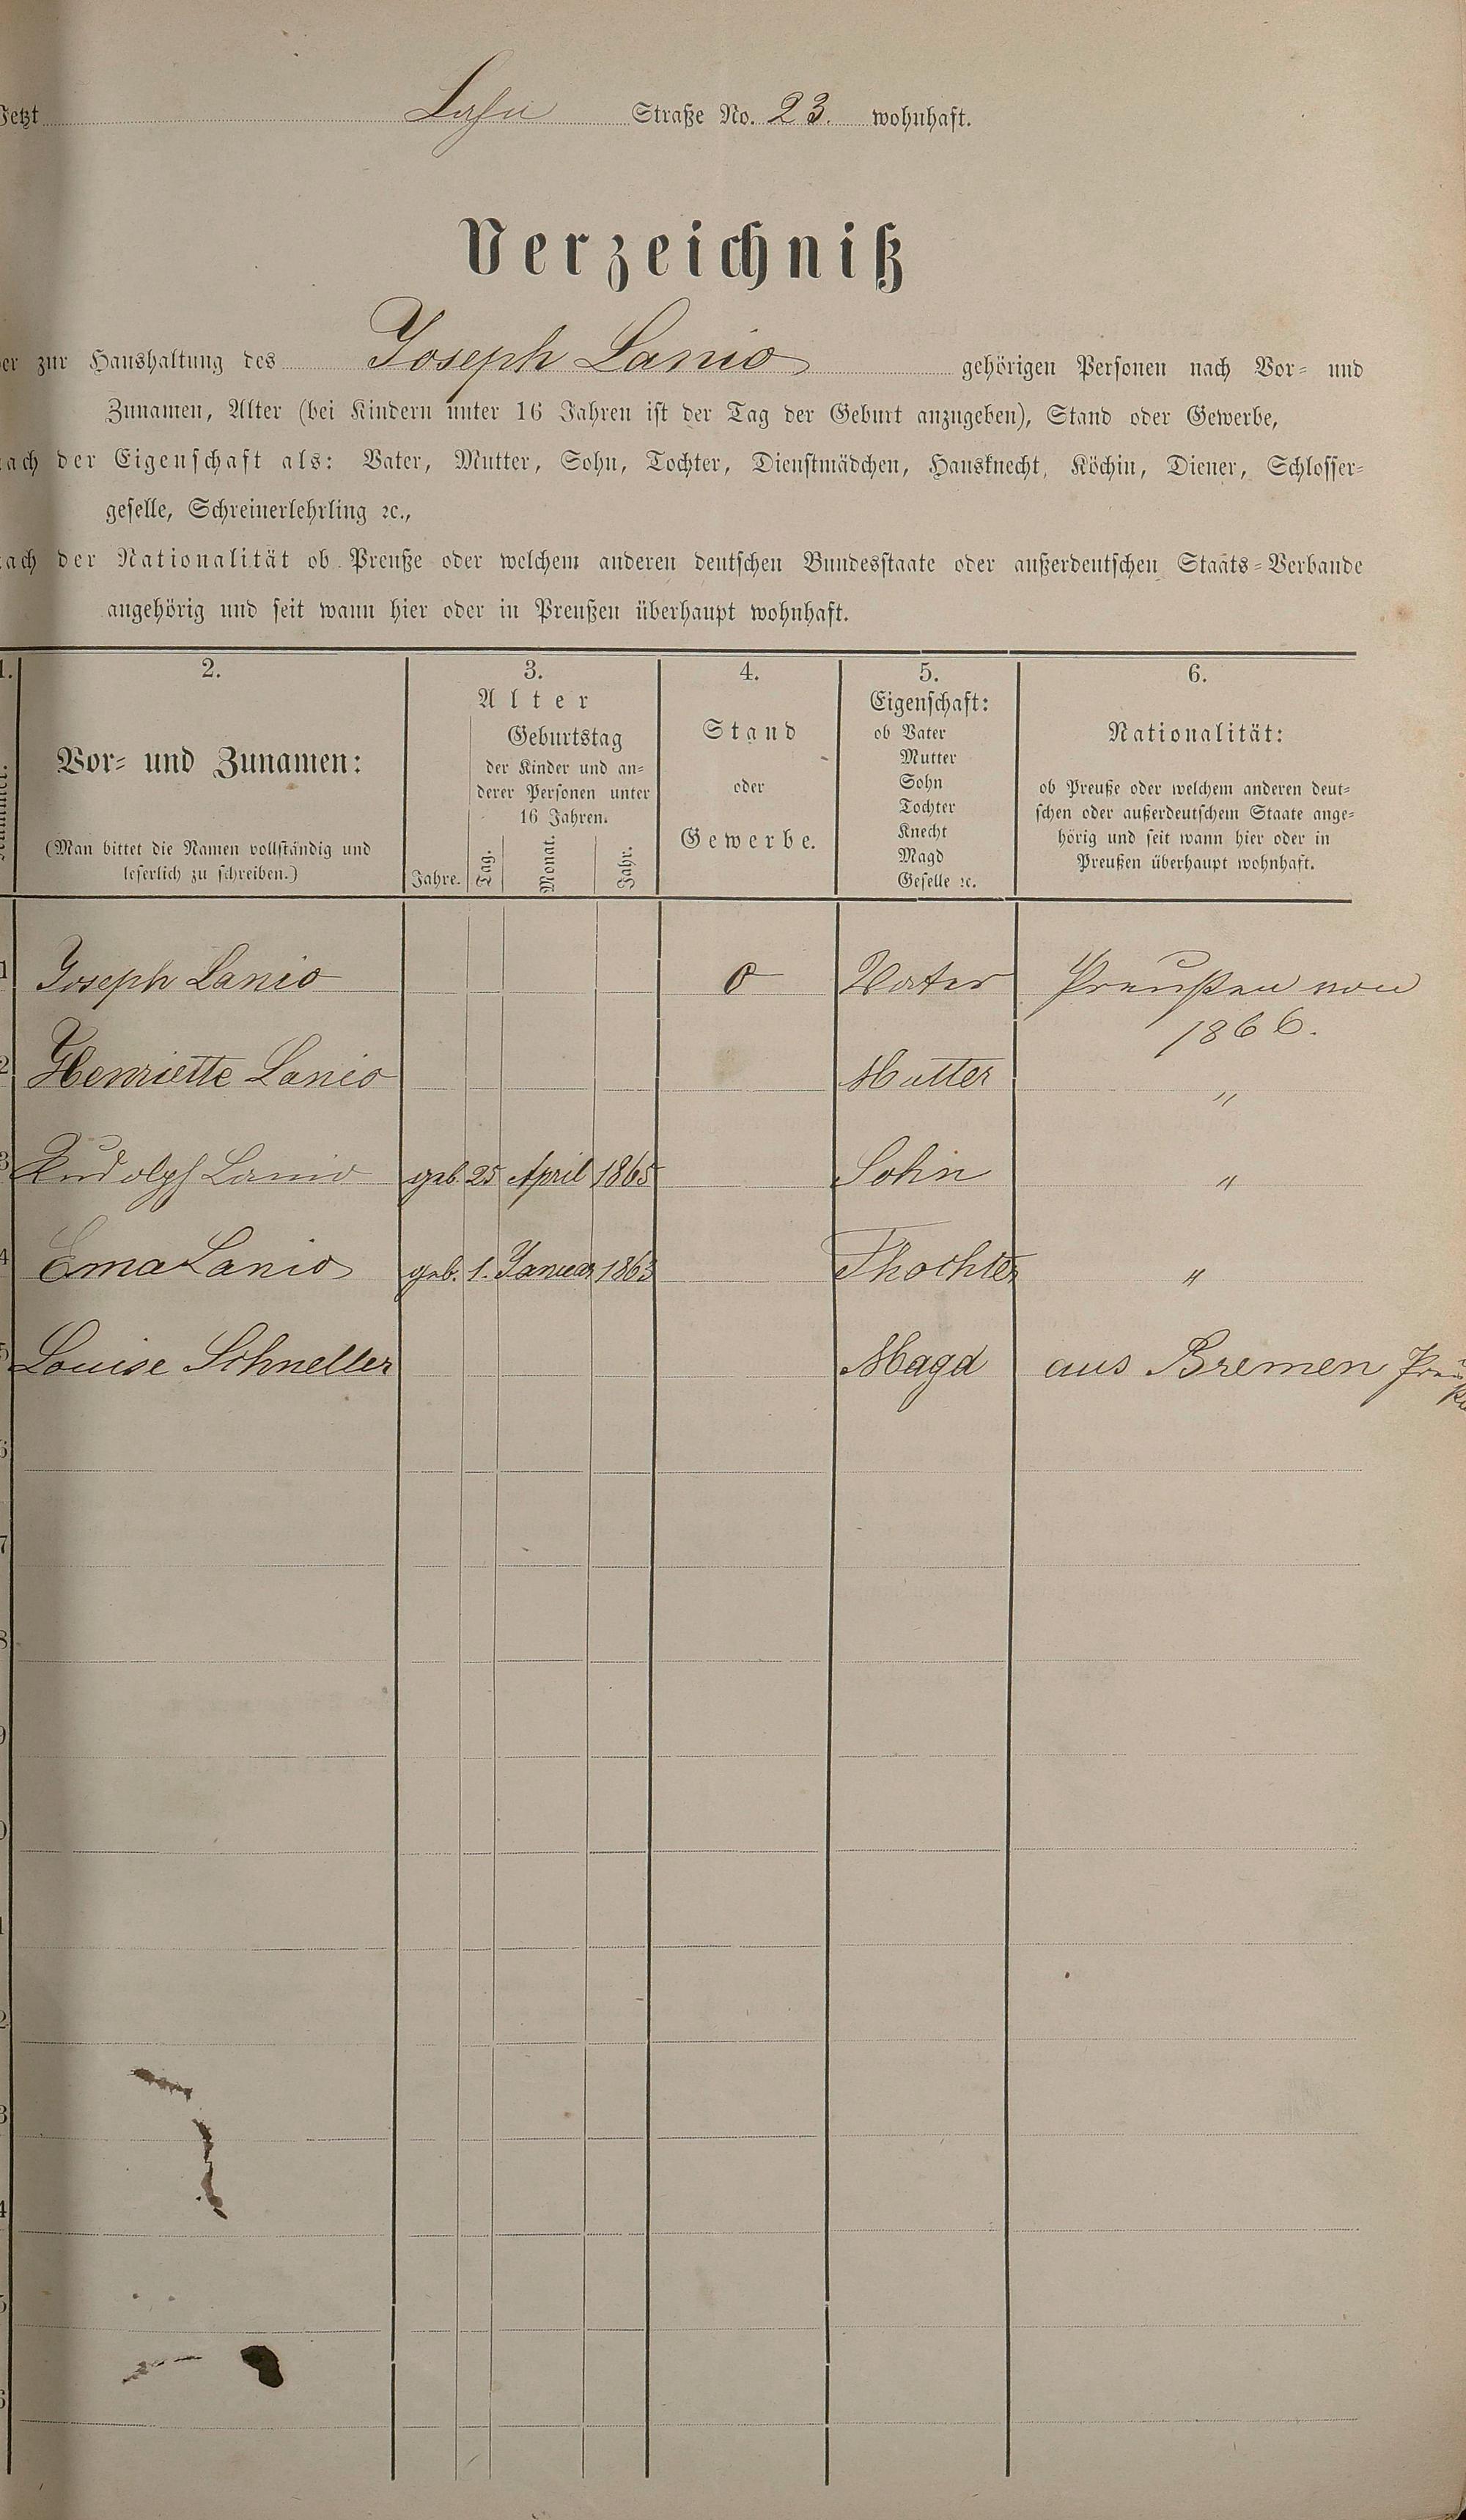 Jetzt Lahn Straße No. 23. wohnhaft.
Verzeichniß
er zur Haushaltung des Joseph Lanio gehörigen Personen nach Vor- und
Zunamen, Alter (bei Kindern unter 16 Jahren ist der Tag der Geburt anzugeben), Stand oder Gewerbe,
ach der Eigenschaft als: Vater, Mutter, Sohn, Tochter, Dienstmädchen, Hausknecht, Köchin, Diener, Schlosser-
geselle, Schreinerlehrling ꝛc.,
ach der Nationalität ob Preuße oder welchem anderen deutschen Bundesstaate oder außerdeutschen Staats-Verbande
angehörig und seit wann hier oder in Preußen überhaupt wohnhaft.
1.
2.
Vor- und Zunamen:
(Man bittet die Namen vollständig und
leserlich zu schreiben.)
3.
Alter
Geburtstag
der Kinder und an-
derer Personen unter
16 Jahren.
Jahre. Tag. Monat. Jahr.
4.
Stand
oder
Gewerbe.
5.
Eigenschaft:
ob Vater
Mutter
Sohn
Tochter
Knecht
Magd
Geselle ꝛc.
6.
Nationalität:
ob Preuße oder welchem anderen deut-
schen oder außerdeutschem Staate ange-
hörig und seit wann hier oder in
Preußen überhaupt wohnhaft.
1 Joseph Lanio Vater Preußen von
1866.
2 Henriette Lanio Mutter "
3 Rudolph Lanio geb. 25 April 1865 Sohn "
4 Ema Lanio geb. 1. Januar 1863 Thochter "
5 Louise Schneller Magd aus Bremen
6
7
8
9
0
1
2
3
4
5
6